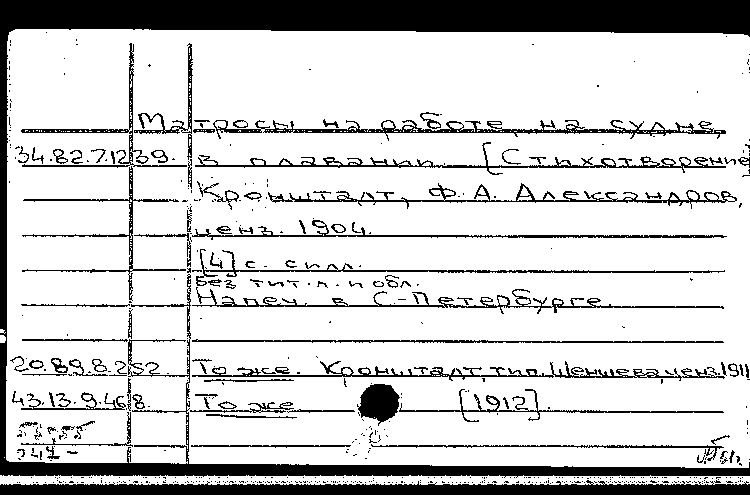 Матросы на работе, на судне,
34.82.7.1239. в плавании. [Стихотворение
Кронштадт, Ф.А. Александров,
ценз. 1904.
[4] с. с илл.
Без тит. л. и обл.
Напеч. в С-Петербурге.
20.89.8.252 То же. Кронштадт, тип. Шеншева, ценз. 1911
43.13.9.468. То же [1912].